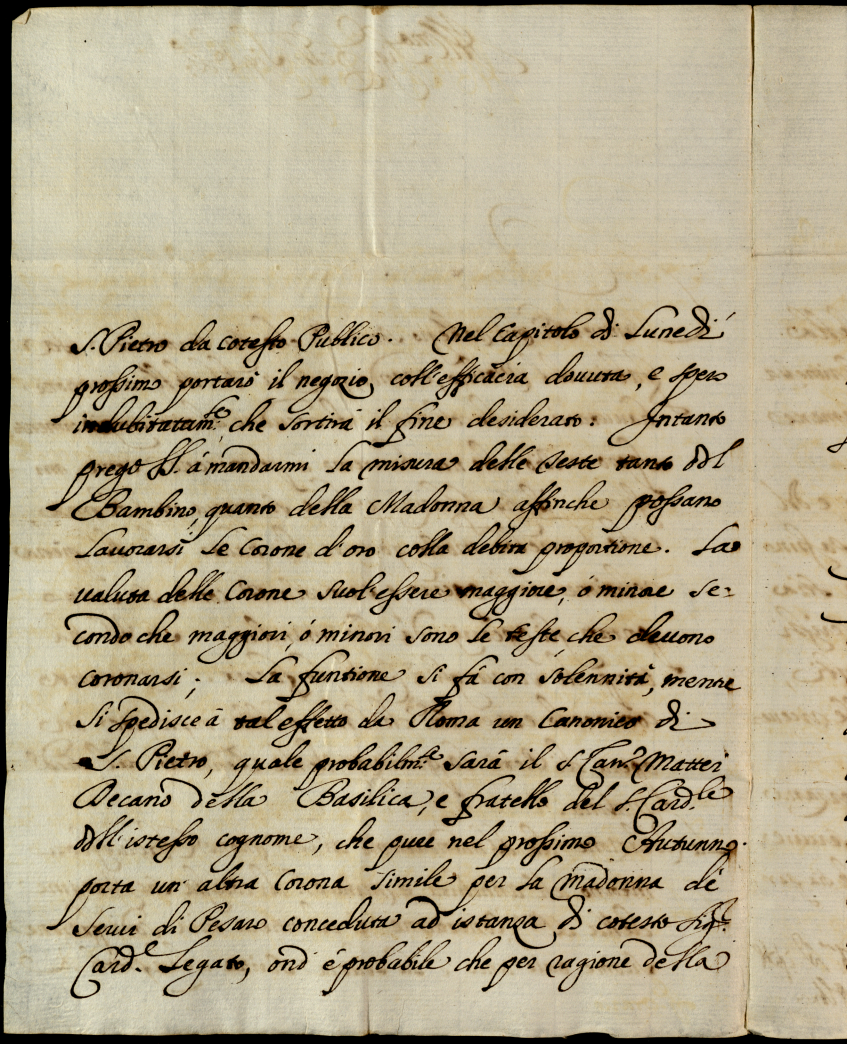 S. Pietro da cotesto Publico. Nel Capitolo di Lunedi
prossimo portarò il negozio, coll'efficacia douuta, e spero
indubitatam.te che sortirà il fine desiderato: Intanto
prego à mandarmi la misura delle teste tanto del
Bambino, quanto della Madonna affinche possano
lauorarsi le Corone d'oro colla debita proportione. La
valuta delle Corone suol'essere maggiore, ó minore se-
condo che maggiori, ó minori sono le teste, che deuono
coronarsi; La funtione si fá con solennità, mentre
si spedisce à tal'effetto da Roma un Canonico di
S. Pietro, quale probabilm.te sarà il S. Can.co Mattei
Decano della Basilica, e fratello del S. Card.le
dell'istesso cognome, che pure nel prossimo Autunno
porta un altra Corona simile per la Madonna de
Serui di Pesaro conceduta ad istanza di cotesto Sig.r
Card.e Legato, ond'è probabile che per ragione della